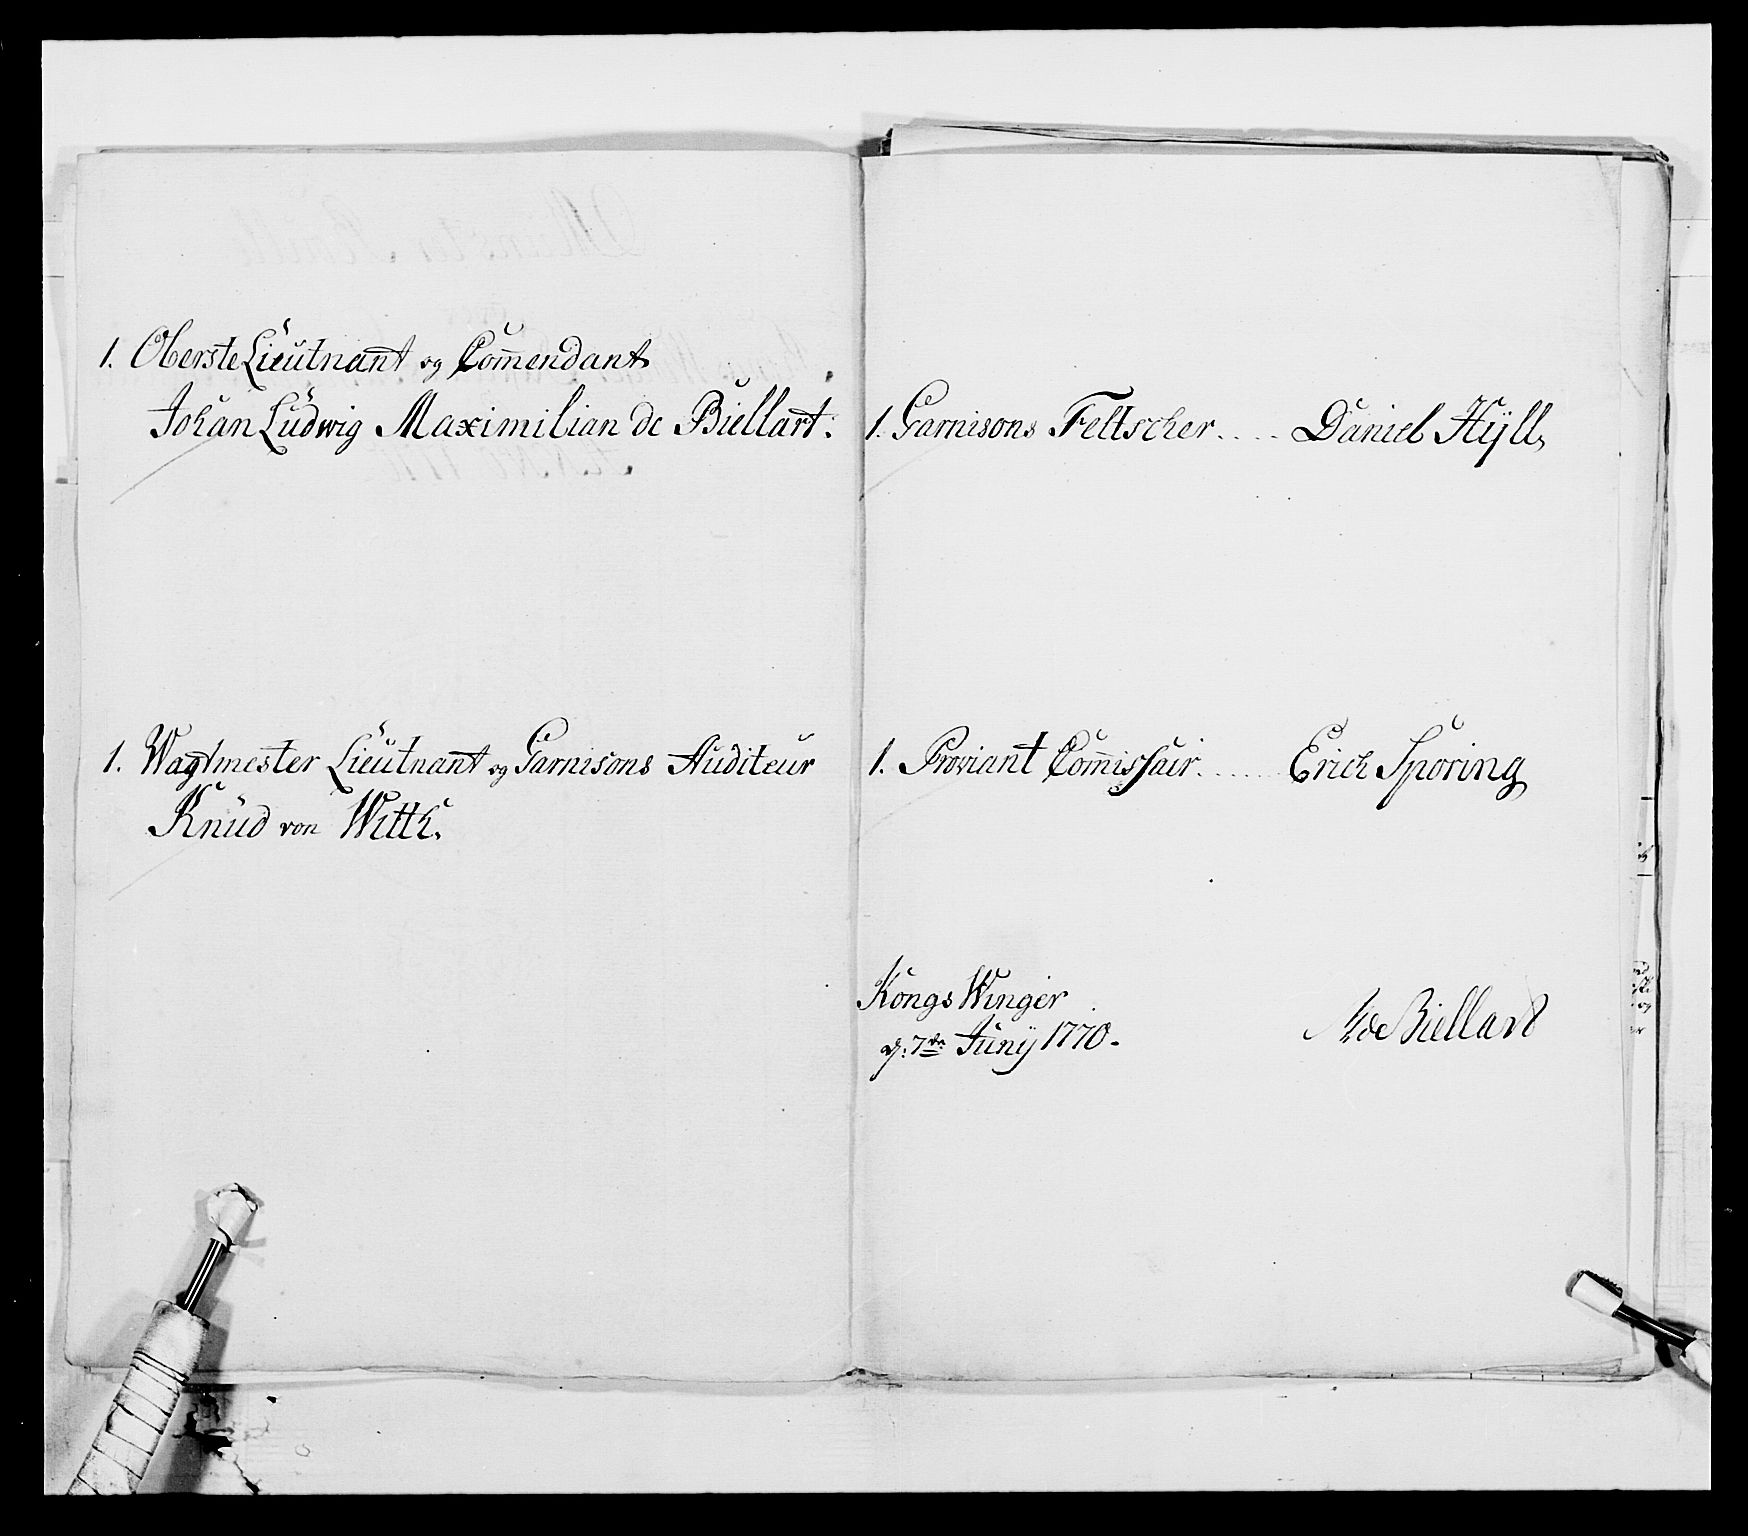 1. Oberste Lieutnant og Com̅endant
Johan Ludwig Maximilian de Biellart.
1. Wagtmester Lieutnant og Garnisons Auditeur
Knud von Witth.
1. Garnisons Feltscher.... Daniel Hÿll,
1. Proviant Com̅issair...... Erich Sporing
Kongs Winger
d: 7de Junÿ 1770.
de Biellart